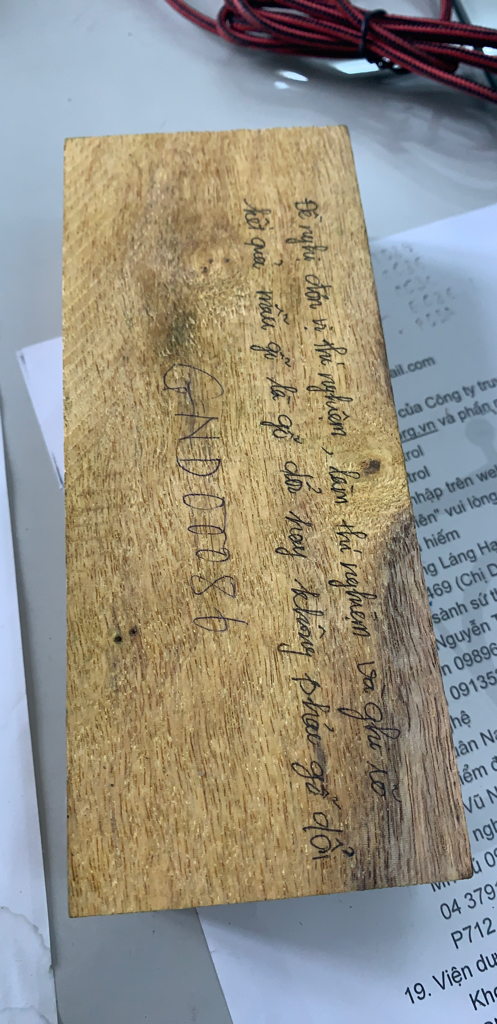 Đề nghị đơn vị thí nghiệm, làm thí nghiệm và ghi rõ
kết quả mẫu gỗ là gỗ dổi hay không phải gỗ dổi
GND00086
ail.com
của Công ty tru
rg.vn và phần n
trol
trol
nhập trên web
iên" vui lòng
hiểm
g Láng Hạ
469 (Chị D
sành sứ th
Nguyễn T
n 09896
09135
hệ
hân Na
iểm đ
Vũ N
ngh
04 379
P712
19. Viện dụ
Kho